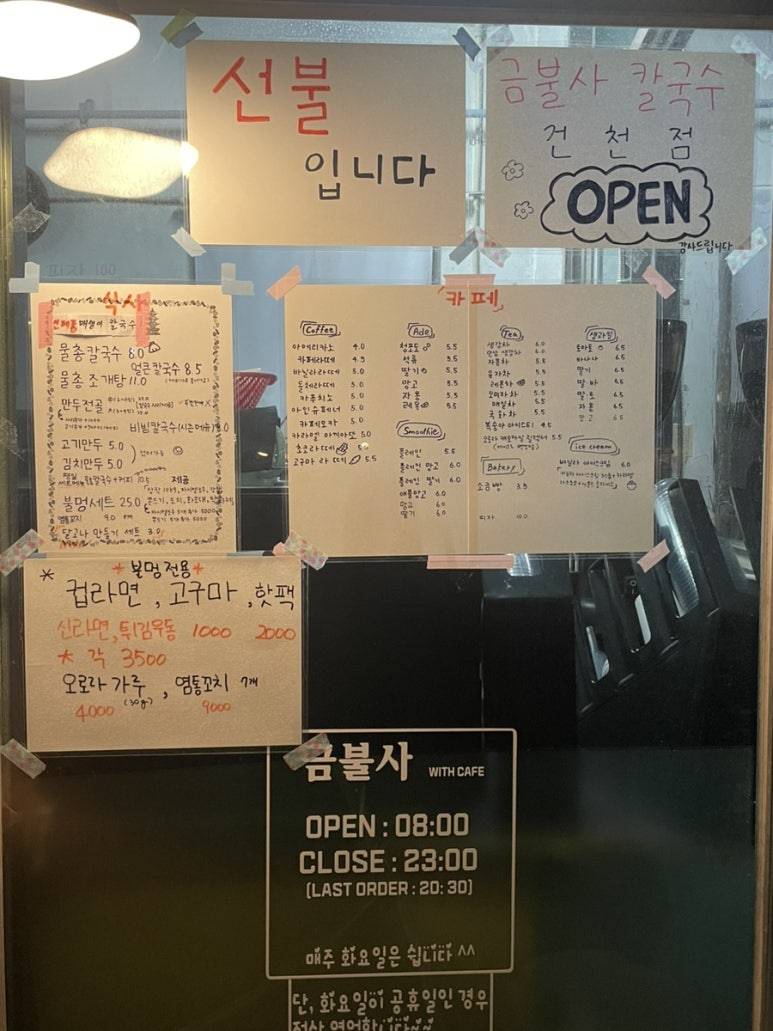 선불
입니다
금불사 칼국수
건천점
OPEN
감사드립니다
피자 100
식사
칼국수
물총칼국수 8.0
얼큰칼국수 8.5
물총 조개탕 11.0
만두전골
비빔칼국수(시즌메뉴)
고기만두 5.0
김치만두 5.0
물총칼국수+커피 10.5
제공
불멍세트 25.0
염통꼬치 9.0
달고나 만들기 세트 3.0
카페
Coffee
아메리카노 4.0
카페라떼 4.5
바닐라라떼 5.0
돌체라떼 5.0
카푸치노 5.0
아인슈페너 5.0
카페모카 5.0
카라멜 마끼아또 5.0
초코라떼 5.0
고구마 라떼 5.5
Ade
청포도 5.5
석류 5.5
딸기 5.5
망고 5.5
자몽 5.5
레몬 5.5
Smoothie
플레인 5.5
플레인 망고 6.0
플레인 딸기 6.0
애플망고 6.0
망고 6.0
딸기 6.0
Tea
생강차 6.0
자몽차 5.5
유자차 5.5
레몬차 5.5
오미자차 5.5
매실차 5.5
국화차 5.5
복숭아 아이스티 4.5
Bakery
소금빵 3.5
피자 10.0
생과일
토마토 6.5
바나나 6.5
딸기 6.5
딸·바 6.5
딸·토 6.5
자몽 6.5
망고 6.5
ice cream
바닐라 아이스크림 6.0
* 불멍 전용 *
* 컵라면, 고구마, 핫팩
신라면, 튀김우동 1000 2000
* 각 3500
오로라 가루, 염통꼬치 7개
4000 (30g) 9000
금불사 WITH CAFE
OPEN : 08:00
CLOSE : 23:00
(LAST ORDER : 20: 30)
매주 화요일은 쉽니다^^
단, 화요일이 공휴일인 경우
정상 영업합니다~~